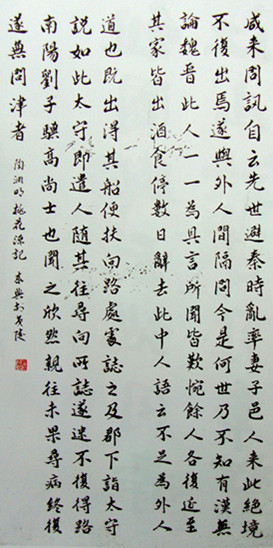 咸来問訊自云先世避秦時亂率妻子邑人来此絕境
不復出焉遂與外人間隔問今是何世乃不知有漢無
論魏晉此人一一為具言所聞皆歎惋餘人各復延至
其家皆出酒食停數日辭去此中人語云不足為外人
道也既出得其船便扶向路處處誌之及郡下詣太守
說如此太守即遣人隨其往尋向所誌遂迷不復得路
南陽劉子驥高尚士也聞之欣然親往未果尋病終後
遂無問津者
陶淵明桃花源記